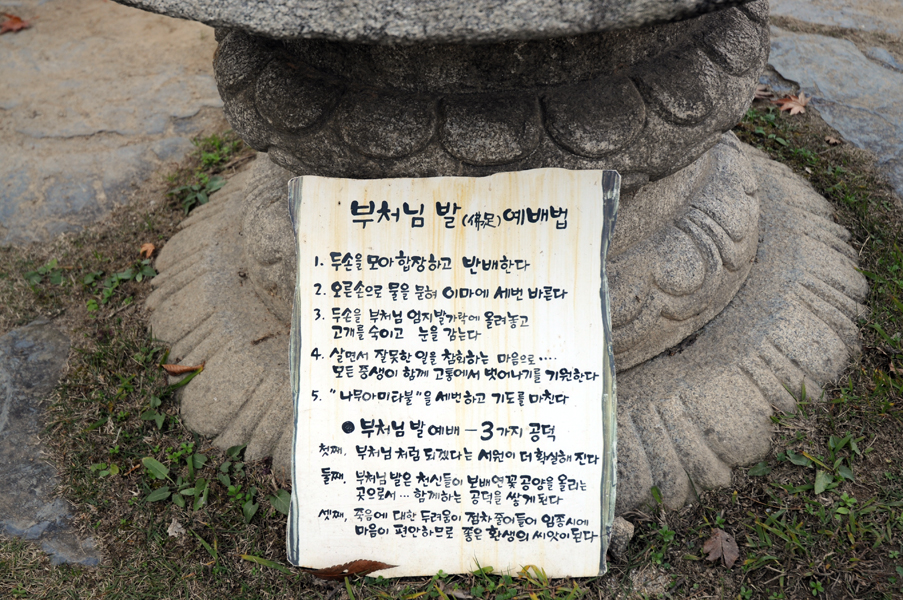 부처님 발(佛足) 예배법
1. 두손을 모아 합장하고 반배한다
2. 오른손으로 물을 묻혀 이마에 세번 바른다
3. 두손을 부처님 엄지발가락에 올려놓고
고개를 숙이고 눈을 감는다
4. 살면서 잘못한 일을 참회하는 마음으로····
모든 중생이 함께 고통에서 벗어나기를 기원한다
5. "나무아미타불"을 세번하고 기도를 마친다
●부처님 발 예배 — 3가지 공덕
첫째, 부처님 처럼 되겠다는 서원이 더 확실해 진다
둘째, 부처님 발은 천신들이 보배연꽃 공양을 올리는
곳으로서··· 함께하는 공덕을 쌓게 된다
셋째, 죽음에 대한 두려움이 점차 줄어들어 임종시에
마음이 편안하므로 좋은 환생의 씨앗이 된다